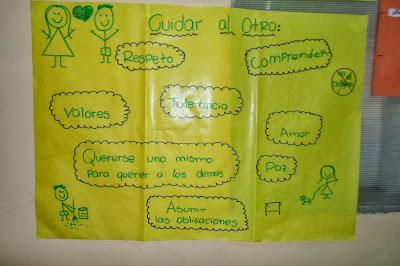 Cuidar al Otro:
Respeto
Comprender
Valores
Tolerancia
Amor
Quererse uno mismo
para querer a los demás
Paz
Asumir
las obligaciones